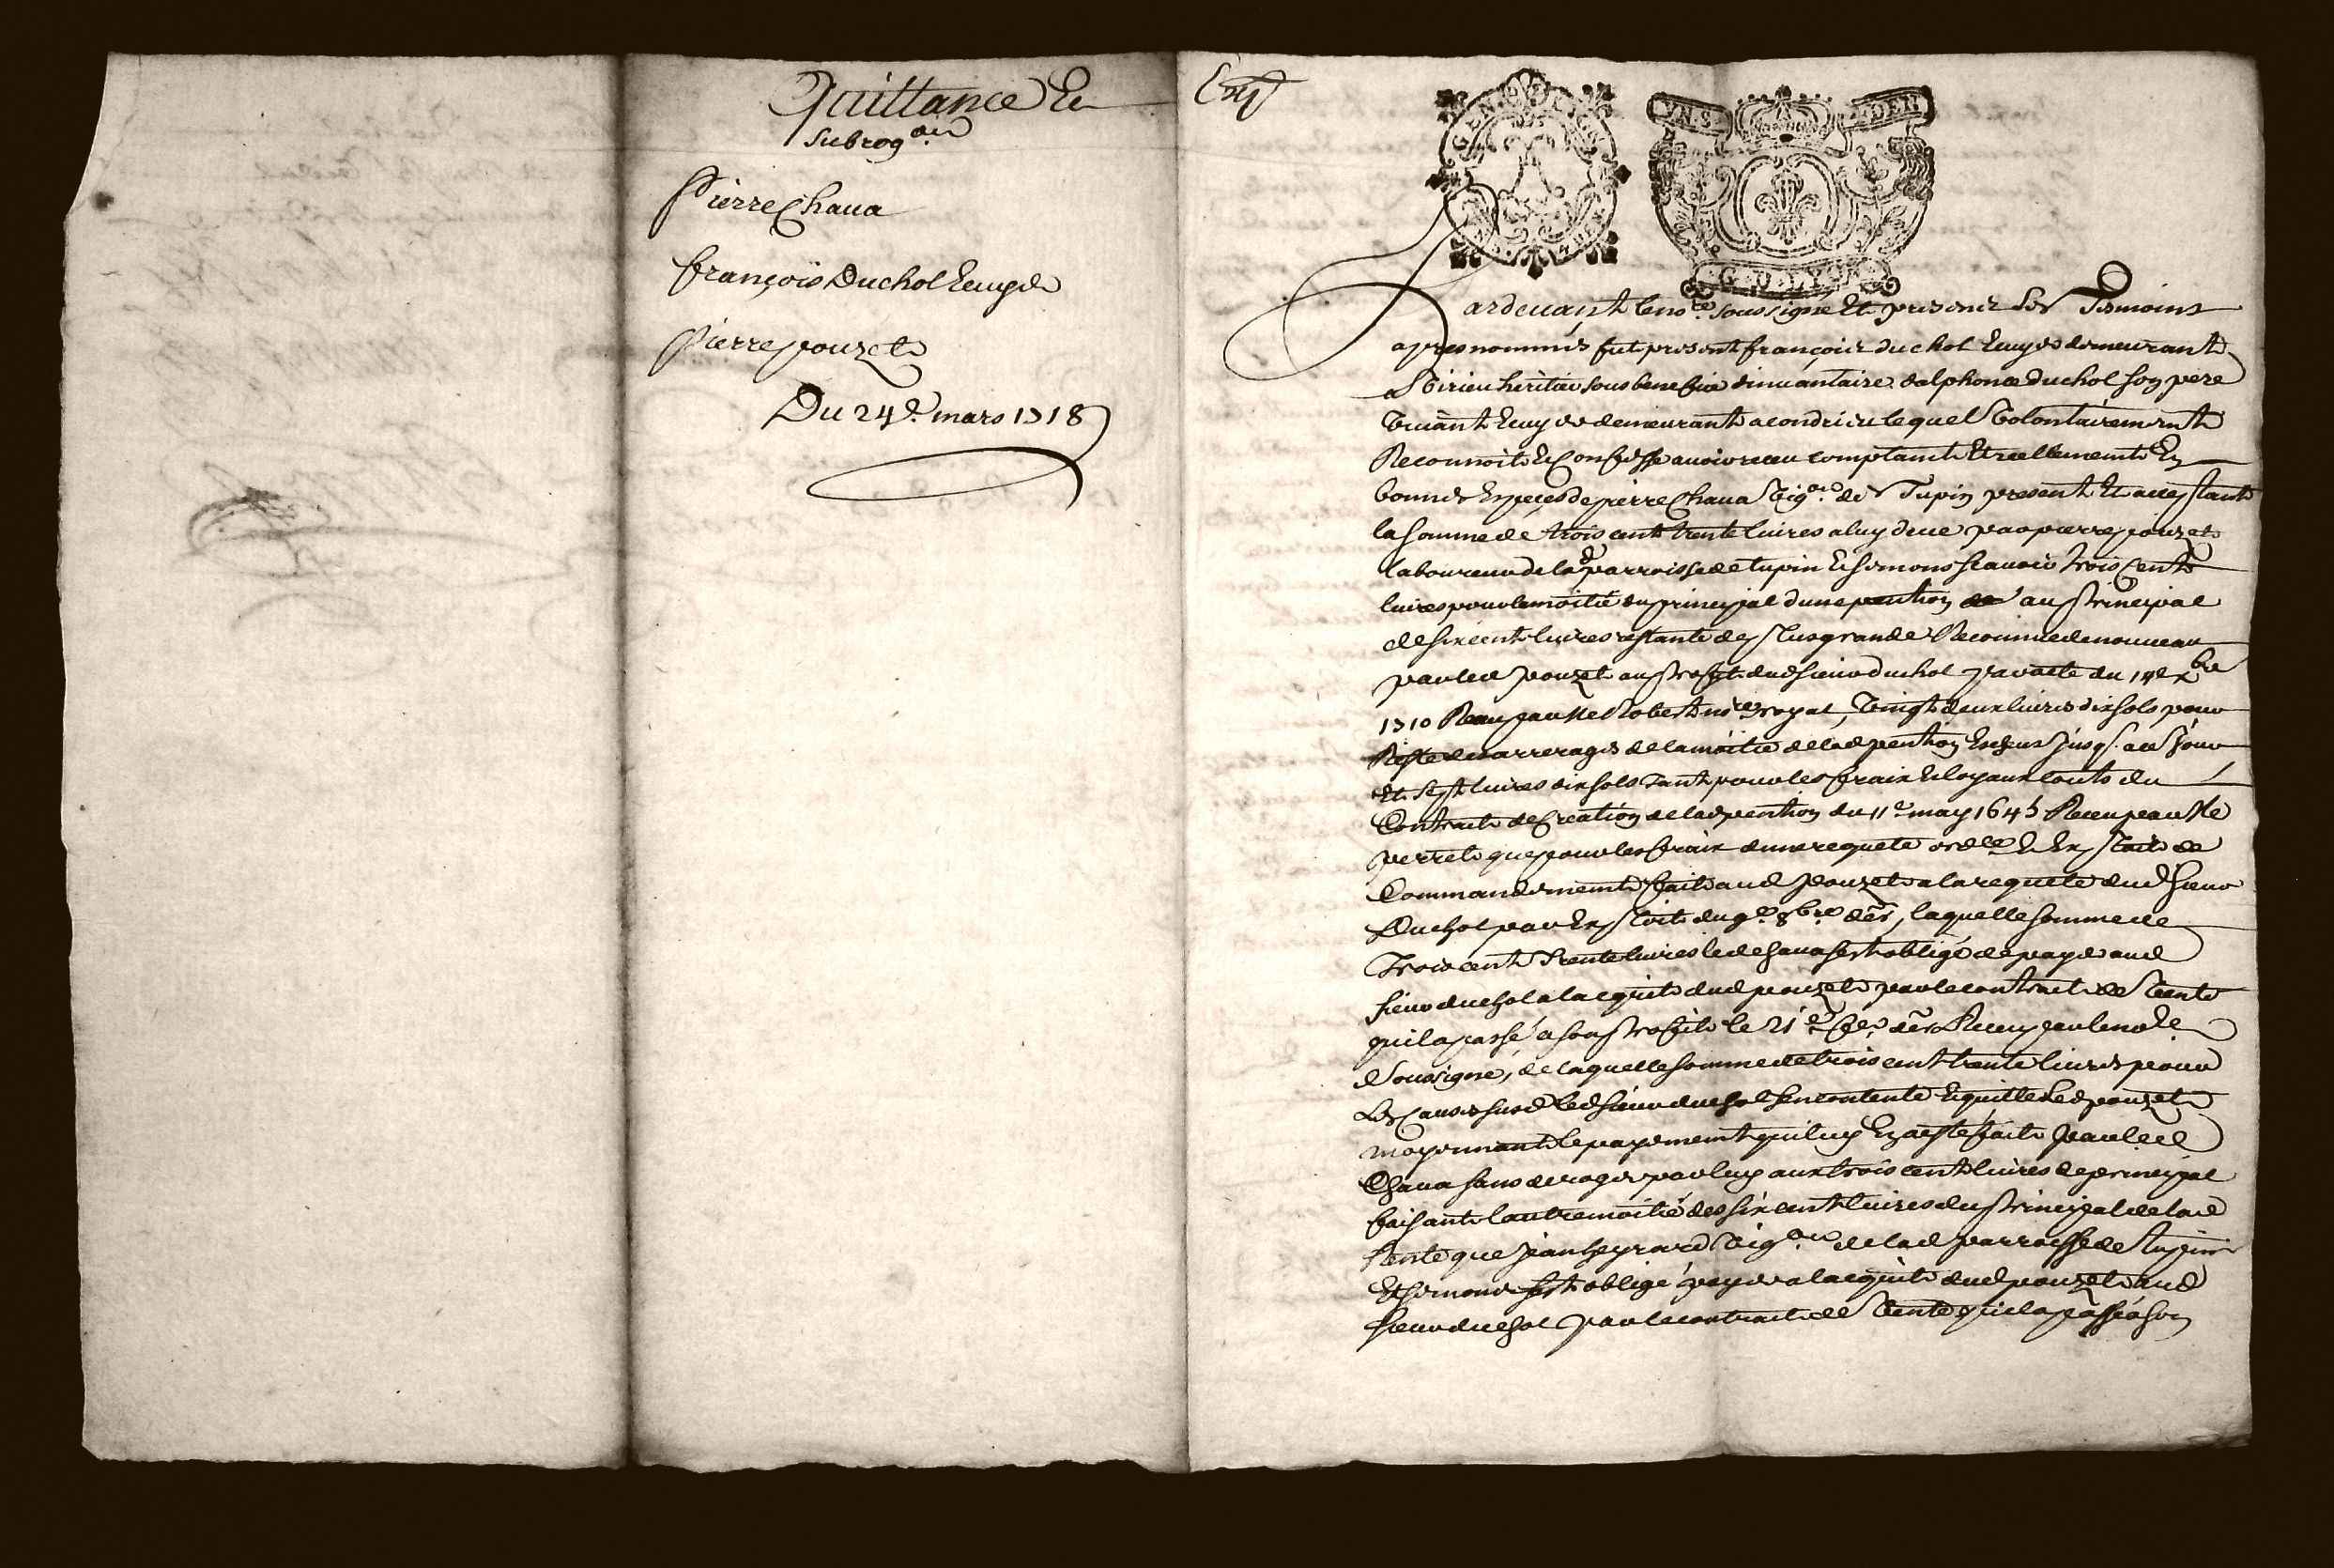 Quittance Et
subrog.aon
Pierre Chaua
françois Duchol Ecuyer
Pierre pouzet
Du 24e. mars 1718
Exp
UN S. DEN
G. D. LY
Pardeuant le nore. soussigné Et presents les Tesmoins
apres nommés fut present françois duchol Ecuyer demeurant
a St irieu heritier sous benefice d'inuantaire dalphonce duchol son pere
viuant Ecuyer demeurant a condrieu lequel volontairement
Reconnoit Et Confesse auoir receu comptant Et reellement En
bonnes Especes de pierre Chaua vig.on de Tupin present Et acceptant
la somme de trois cent trente liures a luy deue par pierre pouzet
laboureur de lad parroisse de tupin Et semons scauoir trois Cent
liures pour la moitié du principal dune pention au principal
de six cent liures restante de plus grande Reconnue de nouueau
par led pouzet au proffit dud sieur duchol par acte du 14e xbre
1710 Receu par Me Robert nore royal, vingt deux liures dix sols pour
Reste des arrerages de la moitié de lad pention Escheus jusq. a ce jour
Et sept liures dix sols tant pour les fraix Et loyaux couts du
Contract de Creation de lad pention du 11e may 1645 Receu par Me
perret que pour les fraix dune requete ordce Et Exploit de
Commandement fait aud pouzet a la requete dud sieur
Duchol par Exploit du 9e 8bre der, laquelle somme de
Trois cent trente liures led chaua sest obligé de payer aud
sieur duchol a lacquit dud pouzet par le contract de vente
quil a passé a son proffit le 21e der Receu par le nore
soussigné, de laquelle somme de trois cent trente liures pour
les Causes susd led sieur duchol sen contente Et quitte led pouzet
moyennant le payement qui luy En a esté fait par led
Chaua sans deroger par luy aux trois cent liures de principal
faisant lautre moitié des six cent liures du principal de lad
Rente que jean vig.on de lad parroisse de tupin
Et semons sest obligé payer a lacquit dud pouzet aud
sieur duchol par le contract de vente quil a passé a son